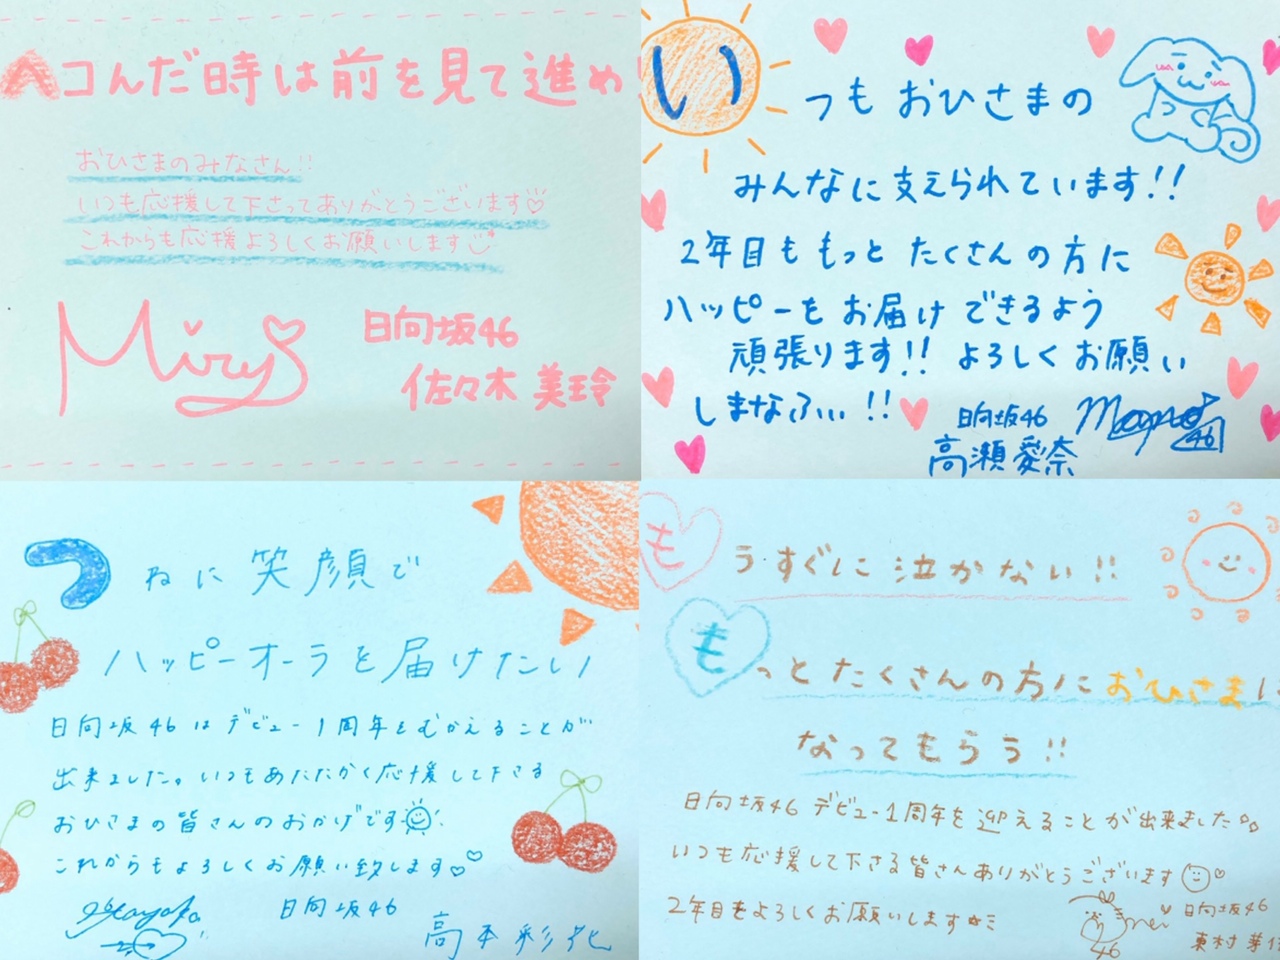 ヘコんだ時は前を見て進め
おひさまのみなさん!!
いつも応援して下さってありがとうございます♡
これからも応援よろしくお願いします
Mirei
日向坂46
佐々木美玲
いつもおひさまの
みんなに支えられています!!
2年目ももっとたくさんの方に
ハッピーをお届けできるよう
頑張ります!! よろしくお願い
しまなふぃ!!
日向坂46
46
高瀬愛奈
つねに笑顔で
ハッピーオーラを届けたい
日向坂46はデビュー1周年をむかえることが
出来ました。いつもあたたかく応援して下さる
おひさまの皆さんのおかげです
これからもよろしくお願い致します♡♡
日向坂46
高本彩花
もうすぐに泣かない!!
もっとたくさんの方におひさまに
なってもらう!!
日向坂46デビュー1周年を迎えることが出来ました
いつも応援して下さる皆さんありがとうございます
2年目もよろしくお願いします
日向坂46
46
東村芽依